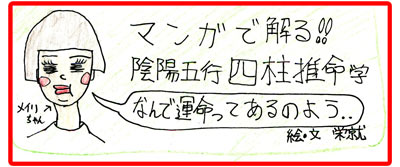 マンガで解る!!
陰陽五行四柱推命学
なんで運命ってあるのよう..
メイリちゃん
絵・文